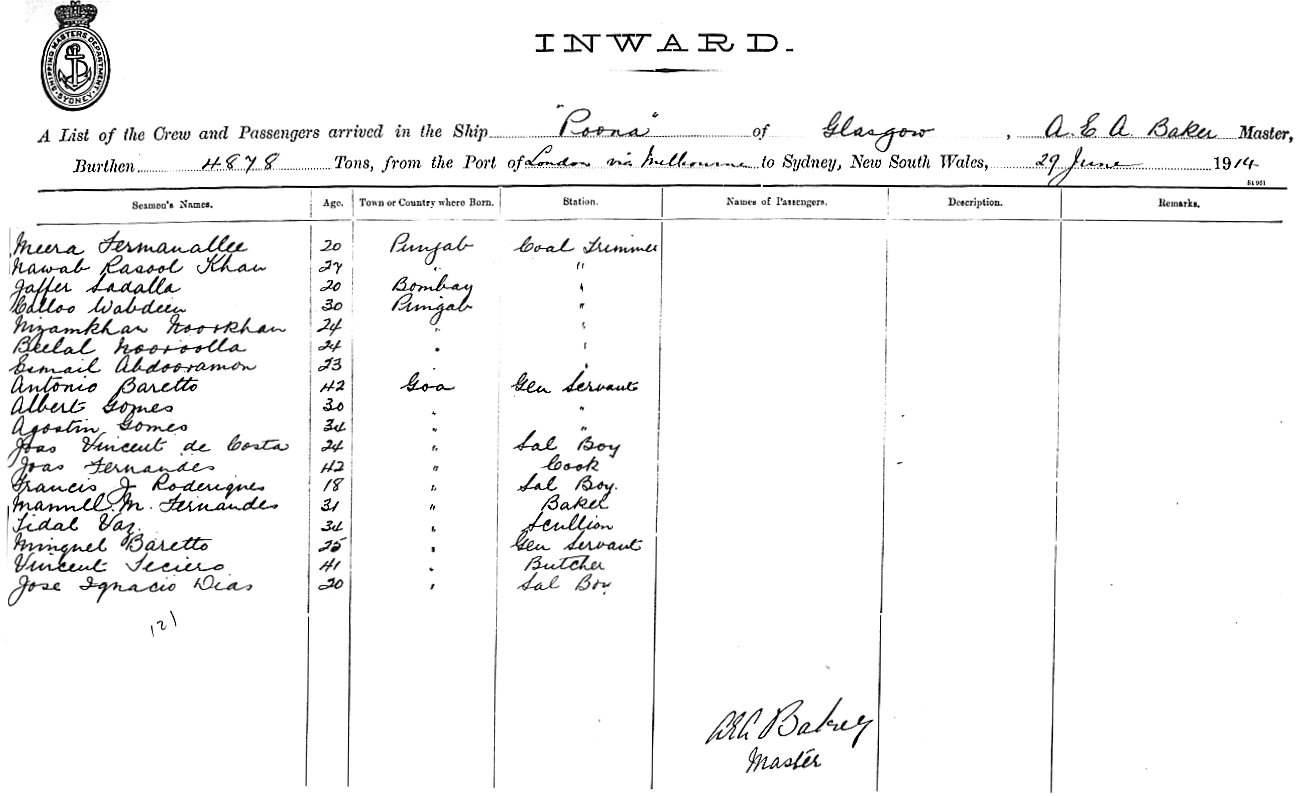 SHIPPING MASTERS DEPARTMENT
SYDNEY
INWARD.
A List of the Crew and Passengers arrived in the Ship "Poona" of Glasgow, A. E. A. Baker Master,
Burthen 4878 Tons, from the Port of London via Melbourne to Sydney, New South Wales, 29 June 1914
Seamen's Names. Age. Town or Country where Born. Station. Names of Passengers. Description. Remarks.
Meera Fermanallee 20 Punjab Coal Trimmer
Nawab Rasool Khan 27 " "
Jaffer Sadalla 20 Bombay "
Calloo Wabdeen 30 Punjab "
Nizamkhan Noorkhan 24 " "
Beelal Nooroolla 24 " "
Esmail Abdooramon 23 " "
Antonio Baretto 42 Goa Gen Servant
Albert Gomes 30 " "
Agostin Gomes 34 " "
Joas Vincent de Costa 24 " Sal Boy
Joas Fernandes 42 " Cook
Francis J Roderigues 18 " Sal Boy.
Manuel M. Fernandes 31 " Baker
Fidal Vaz 34 " Scullion
Minguel Baretto 25 " Gen Servant
Vincent Teciero 41 " Butcher
Jose Ignacio Dias 20 " Sal Boy
121
AEA Baker
Master